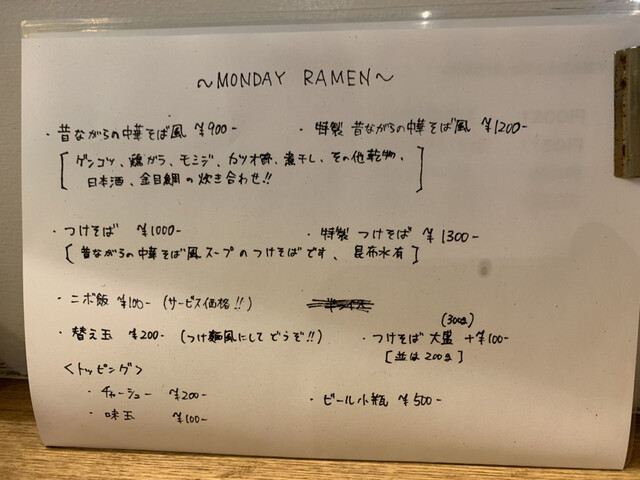 ～MONDAY RAMEN～
・昔ながらの中華そば風 ¥900-
・特製 昔ながらの中華そば風 ¥1200-
[ゲンコツ、鶏ガラ、モミジ、カツオ節、煮干し、その他乾物、
日本酒、金目鯛の炊き合わせ!!]
・つけそば ¥1000-
・特製 つけそば ¥1300-
[昔ながらの中華そば風スープのつけそばです、昆布水有]
・ニボ飯 ¥100-(サービス価格!!)
・替え玉 ¥200-(つけ麺風にしてどうぞ!!)
(300g)
・つけそば 大盛 +¥100-
[並は200g]
<トッピング>
・チャーシュー ¥200-
・ビール小瓶 ¥500-
・味玉 ¥100-